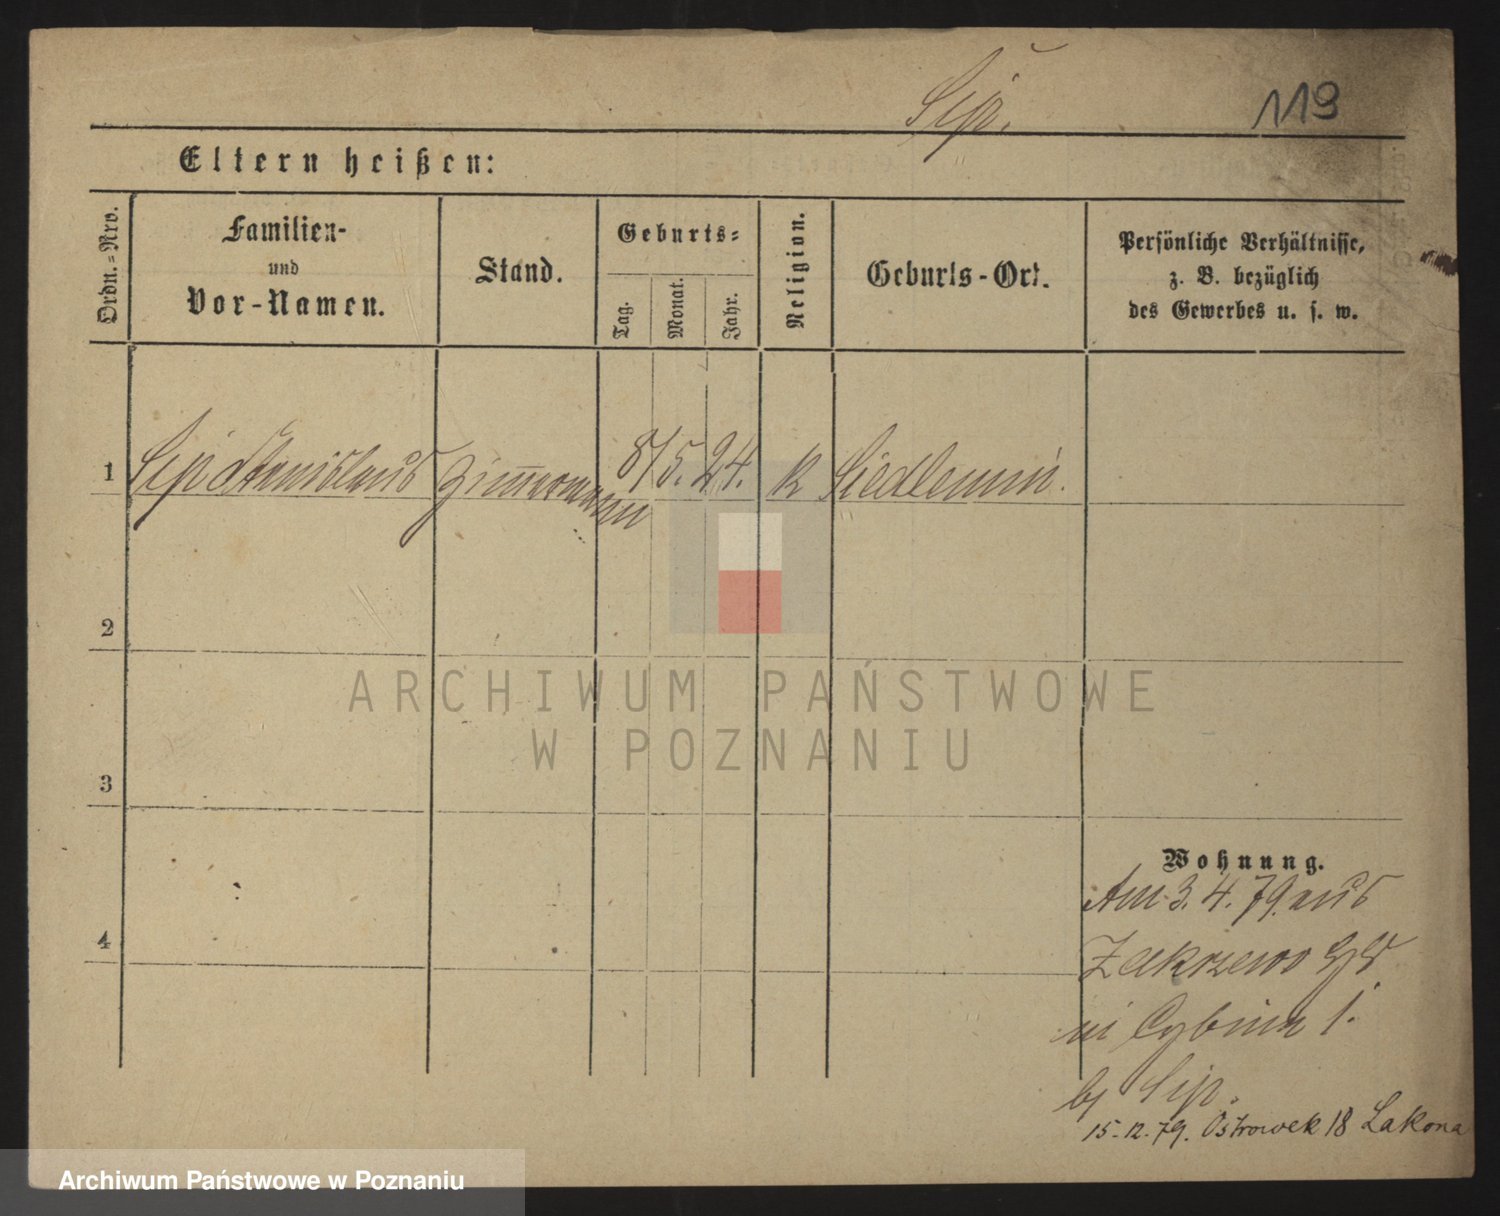 Sip.
119
Eltern heißen:
Ordn.=Nro.
Familien-
und
Vor-Namen.
Stand.
Geburts=
Tag.
Monat.
Jahr.
Religion.
Geburts-Ort.
Persönliche Verhältnisse,
z. B. bezüglich
des Gewerbes u. s. w.
1 Sip Stanislaus Zimmermann 8/5. 24. k Siedlemin.
2
3
4
Wohnung.
Am 3. 4. 79. aus
Zakrzewo
in Cybina 1.
bj Sip.
15.12.79. Ostrowek 18 Lakona
ARCHIWUM PAŃSTWOWE
W POZNANIU
Archiwum Państwowe w Poznaniu